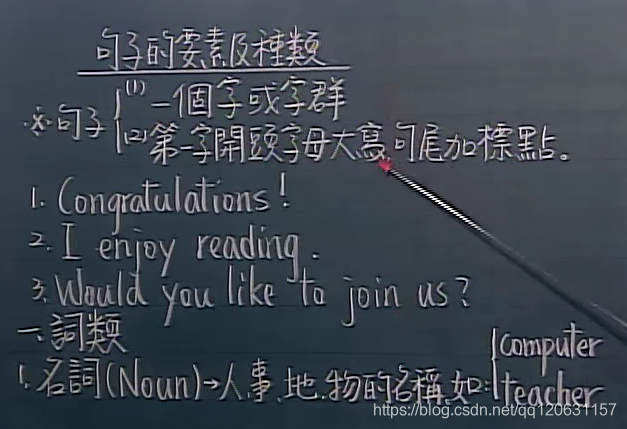 句子的要素及種類
※句子 (1)一個字或字群
(2)第一字開頭字母大寫,句尾加標點。
1. Congratulations!
2. I enjoy reading.
3. Would you like to join us?
一.詞類
1.名詞(Noun)→人.事.地.物的名稱.如: computer
teacher
https://blog.csdn.net/qq120631157